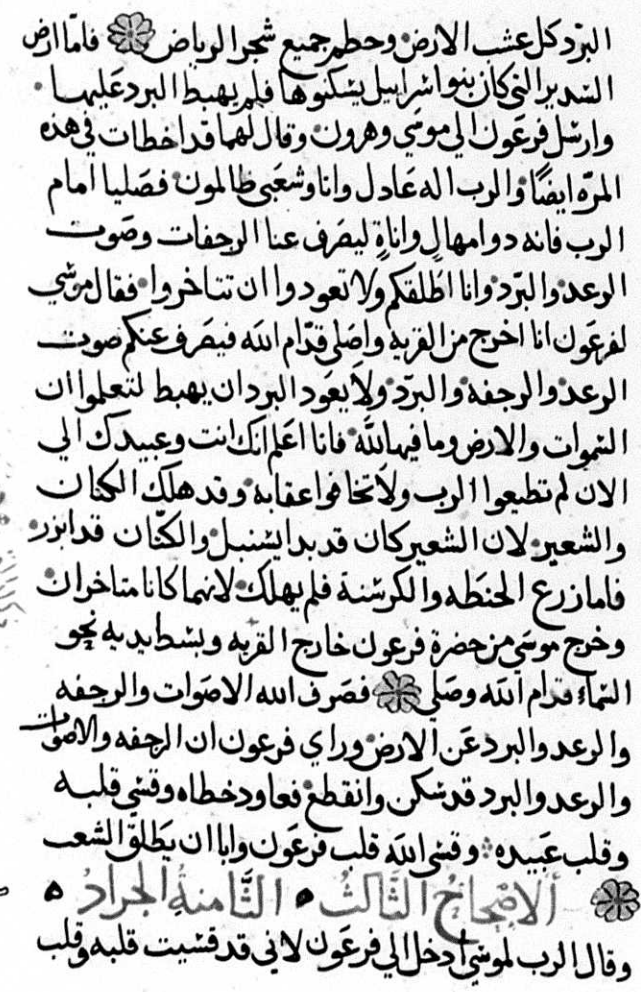 البرد كل عشب الارض وحطم جميع شجر الرياض فاما ارض
السدير التي كان بنوا اسراييل يسكنوها فلم يهبط البرد عليها
وارسل فرعون الي موسي وهرون وقال لهما قد اخطات في هذه
المرّه ايضًا والرب اله عادل وانا وشعبي ظالمون فصليا امام
الرب فانه دوامهال واناةٍ ليصرف عنا الرجفات وصوت
الرعد والبرّد وانا اطلقكم ولا تعودوا ان تتاخروا فقال موسي
لفرعون انا اخرج من القريه واصلي قدّام الله فيصرف عنكم صوت
الرعد والرجفه والبرّد ولا يعود البرد ان يهبط لتعلموا ان
السموات والارض وما فيها لله فانا اعلم انك انت وعبيدك الي
الان لم تطيعوا الرب ولا تخافوا عقابه وقد هلك الكتان
والشعير لان الشعير كان قد بدا يسنبل والكتّان قد ابزر
فاما زرع الحنطه والكرسنة فلم يهلك لانهما كانا متاخران
وخرج موسي من حضرة فرعون خارج القريه وبسط يديه نحو
السماء قدام الله وصلي فصرف الله الاصوات والرجفه
والرعد والبرد عن الارض وراي فرعون ان الرجفه والاصوات
والرعد والبرد قد سكن وانقطع فعاود خطاه وقسي قلبه
وقلب عبيده وقسي الله قلب فرعون وابا ان يطلق الشعب
ألاصحاح الثَّالث الثَّامنةِ الجرادُ
وقال الرب لموسي ادخل الي فرعون لاني قد قسيت قلبه وقلب